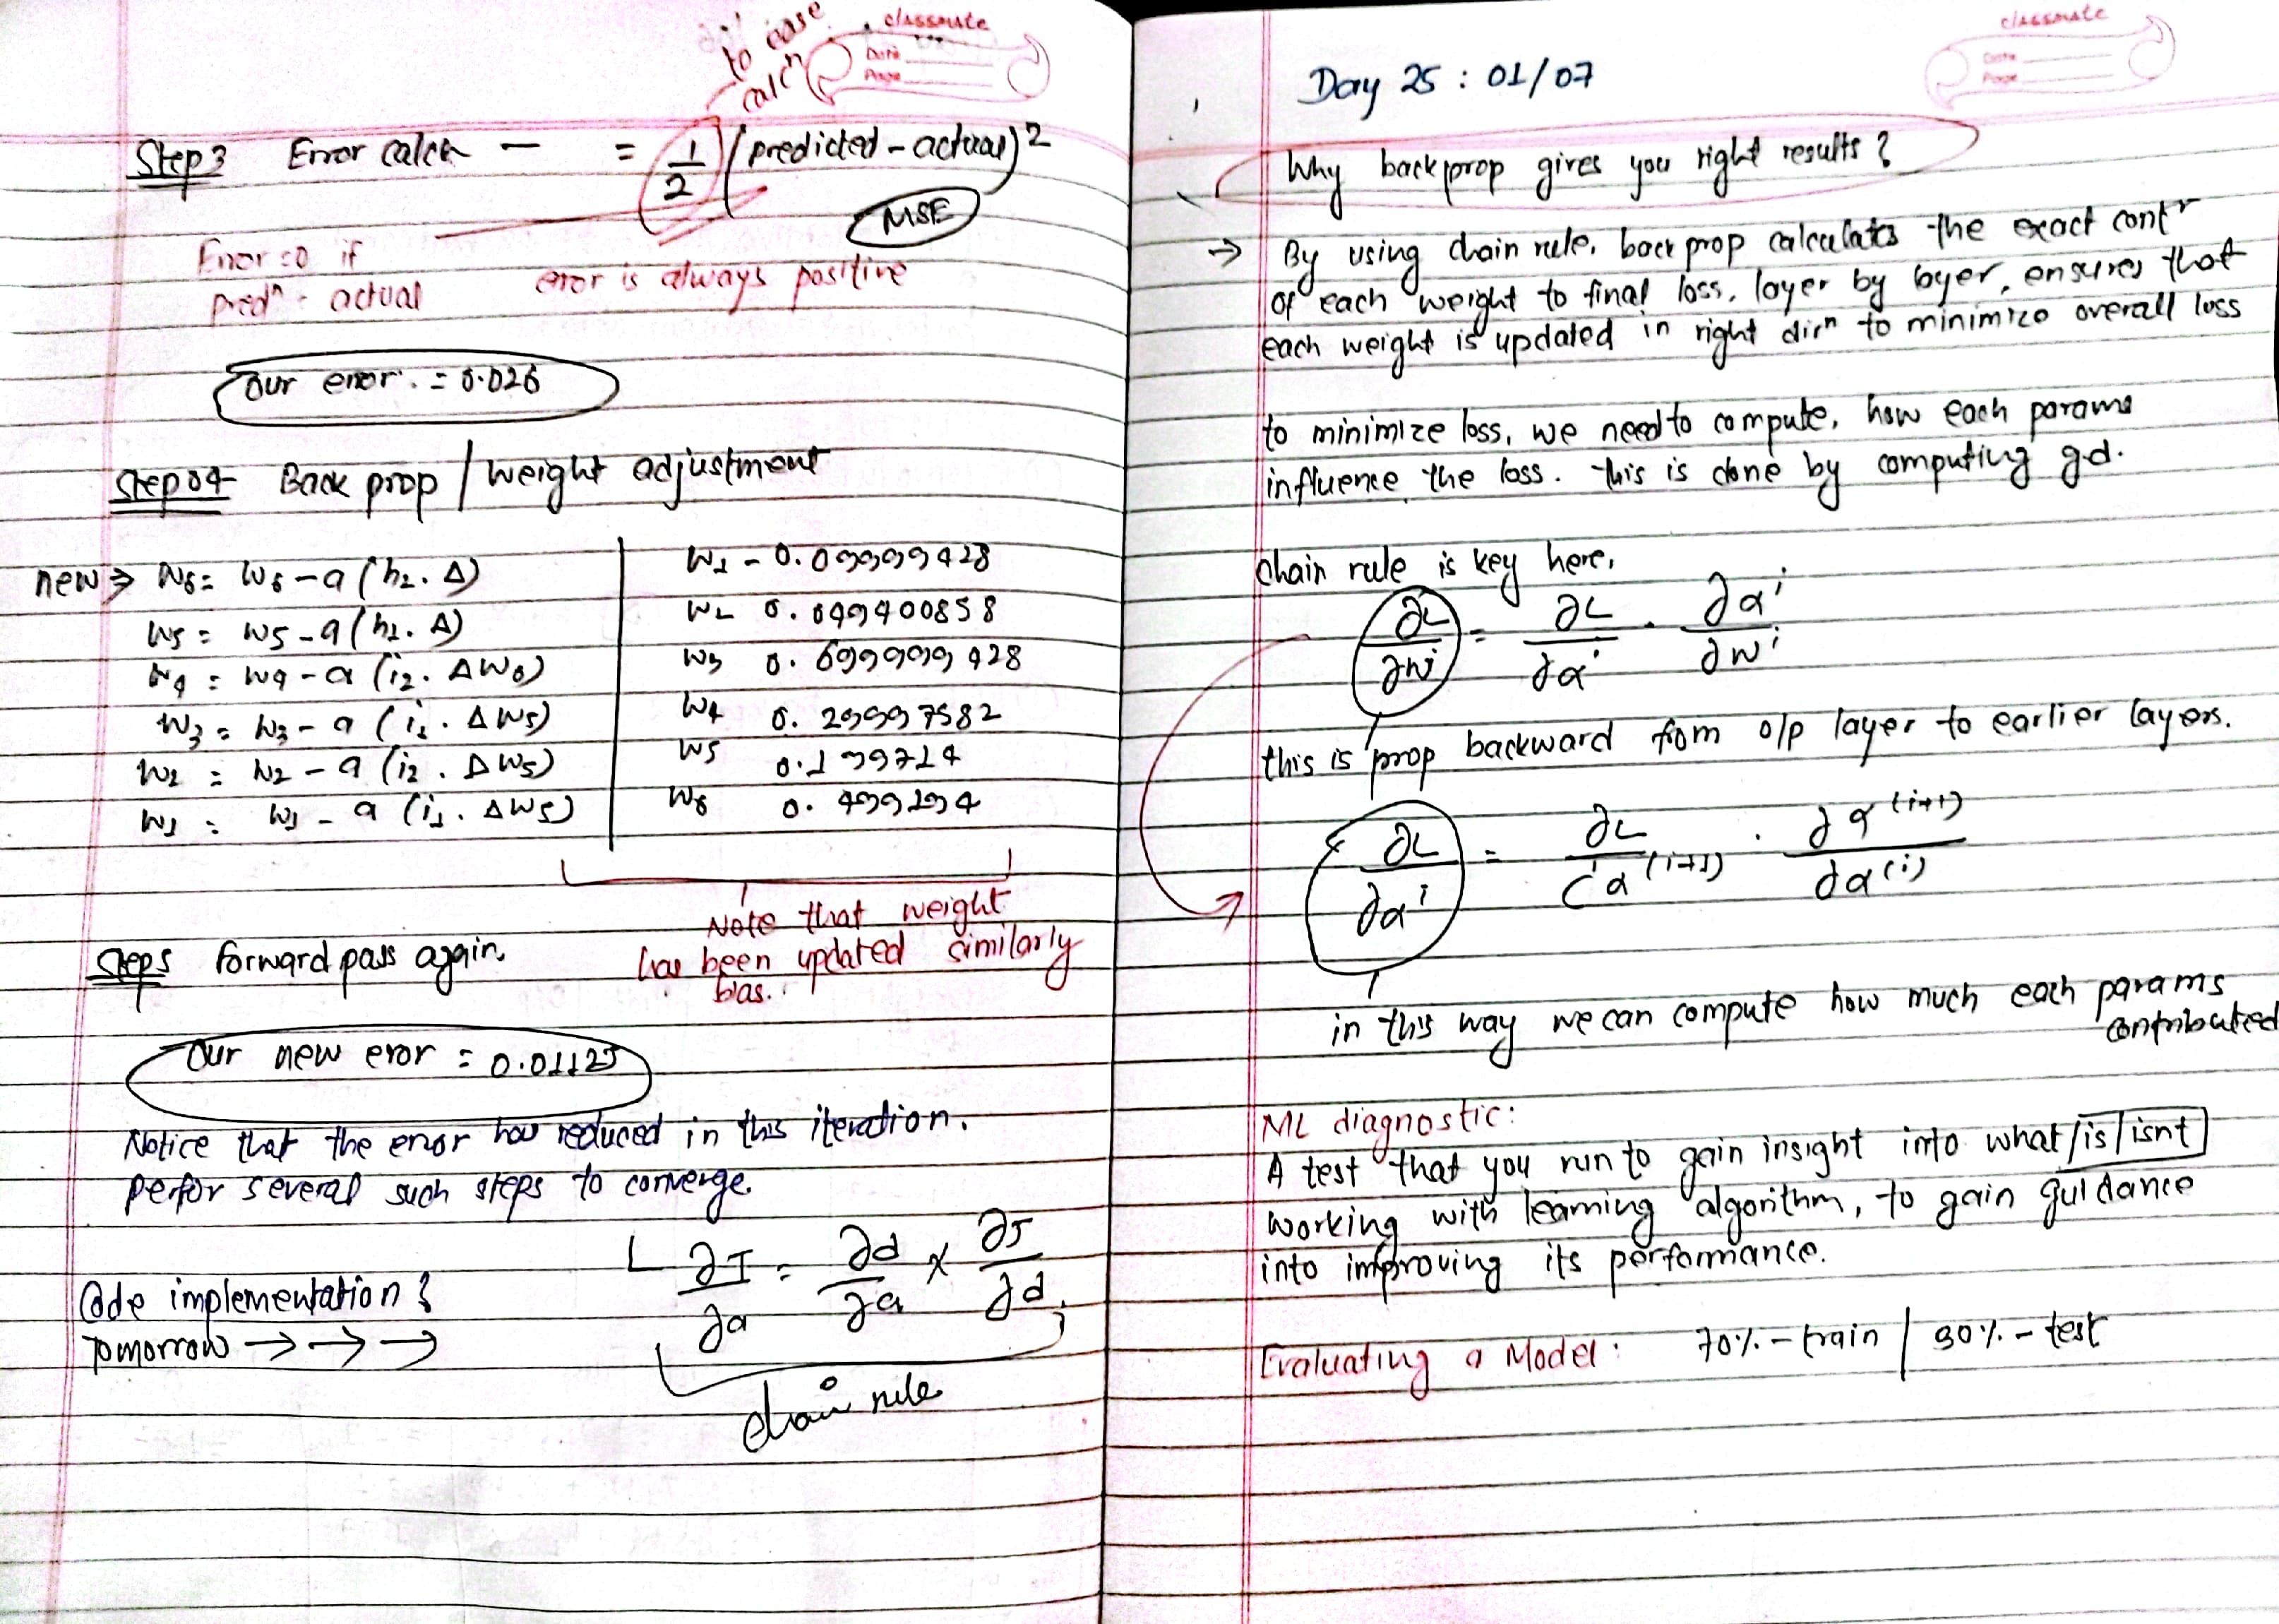 to ease
calcⁿ
classmate
Date
Page
Step 3 Error calcn — = 1/2 (predicted - actual)²
MSE
Error = 0 if
predⁿ = actual
error is always positive
Our error. = 0.026
Step 04 Back prop / weight adjustment
new → W6 = W6 - a (h2. Δ)
W5 = W5 - a (h1. Δ)
W4 = W4 - a (i2. ΔW6)
W3 = W3 - a (i1. ΔW5)
W2 = W2 - a (i2. ΔW5)
W1 = W1 - a (i1. ΔW5)
W1 - 0.09999428
W2 0.099400858
W3 0.699999928
W4 0.29997582
W5 0.199714
W6 0.499194
Note that weight
has been updated similarly
bias.
Step 5 forward pass again.
Our new eror = 0.01125
Notice that the error has reduced in this iteration.
perfor several such steps to converge.
∂J/∂a = ∂d/∂a × ∂J/∂d
chain rule
Code implementation?
Tomorrow → → →
classmate
Date
Page
Day 25 : 01/07
Why backprop gives you right results?
→ By using chain rule, back prop calculates the exact contʳ
of each weight to final loss, layer by layer, ensures that
each weight is updated in right dirⁿ to minimize overall loss
to minimize loss, we need to compute, how each params
influence the loss. this is done by computing g.d.
Chain rule is key here,
∂L/∂wⁱ = ∂L/∂αⁱ . ∂αⁱ/∂wⁱ
this is prop backward from o/p layer to earlier layers.
∂L/∂αⁱ = ∂L/∂α(i+1) . ∂α(i+1)/∂α(i)
in this way we can compute how much each params
contributed
ML diagnostic:
A test that you run to gain insight into what/is/isnt
working with learning algorithm, to gain guidance
into improving its performance.
Evaluating a Model: 70% - train / 30% - test